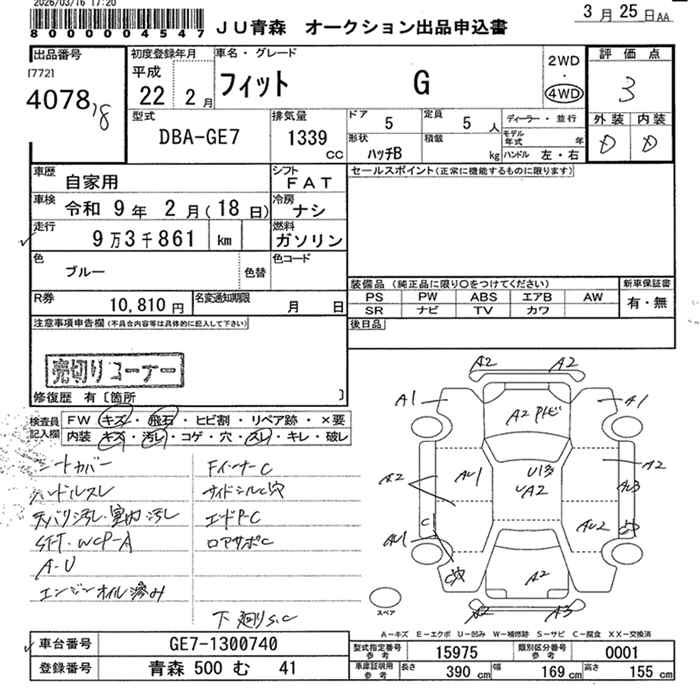 2026/03/16 17:20
8 0 0 0 0 4 5 4 7
ＪＵ青森 オークション出品申込書
3月25日AA
出品番号
[772]
4078
初度登録年月
平成
22 2月
車名・グレード
フィット G
2WD
・
4WD
評価点
3
外装 内装
D D
型式
DBA-GE7
排気量
1339
CC
ドア
5
定員
5 人
形状
ハッチB
積載
kg
ディーラー・並行
モデル年式 年
ハンドル 左・右
車歴
自家用
シフト
FAT
車検
令和 9年 2月(18日)
冷房
ナシ
走行
9万3千861 km
燃料
ガソリン
色
ブルー
色替
色コード
R券
10,810円
名変通知期限
月 日
セールスポイント(正常に機能するものに限ります)
装備品 (純正品に限り○をつけてください)
新車保証書
PS PW ABS エアB AW
SR ナビ TV カワ
有・無
後日品
注意事項申告欄(不具合内容等は具体的に記入して下さい)
売切りコーナー
修復歴 有〔箇所 〕
検査員記入欄
FW キズ・飛石・ヒビ割・リペア跡・×要
内装 キズ・汚レ・コゲ・穴・スレ・キレ・破レ
シートカバー
ハンドルスレ
天バリ汚レ・室内汚レ
A-U
エンジンオイル滲み
FインナーC
サイドシルC穴
エンドP-C
ロアサポC
下廻りS.C
A2 A2
A1 A1
A2
A2 A2
AU1
U13
A2
AU3
AU1
C
AU2
C穴
A2
A2 A3
スペア
A－キズ E－エクボ U－凹み W－補修跡 S－サビ C－腐食 XX－交換済
車台番号
GE7-1300740
登録番号
青森 500 む 41
型式指定番号
参考
15975
類別区分番号
参考
0001
車庫証明用
参考
長さ 390 cm
幅 169 cm
高さ 155 cm